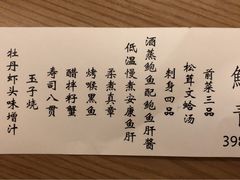 前菜三品
松茸文蛤汤
刺身四品
酒蒸鲍鱼配鲍鱼肝酱
低温慢煮安康鱼肝
柔煮真章
烤喉黑鱼
醋拌籽蟹
寿司八贯
玉子烧
牡丹虾头味增汁